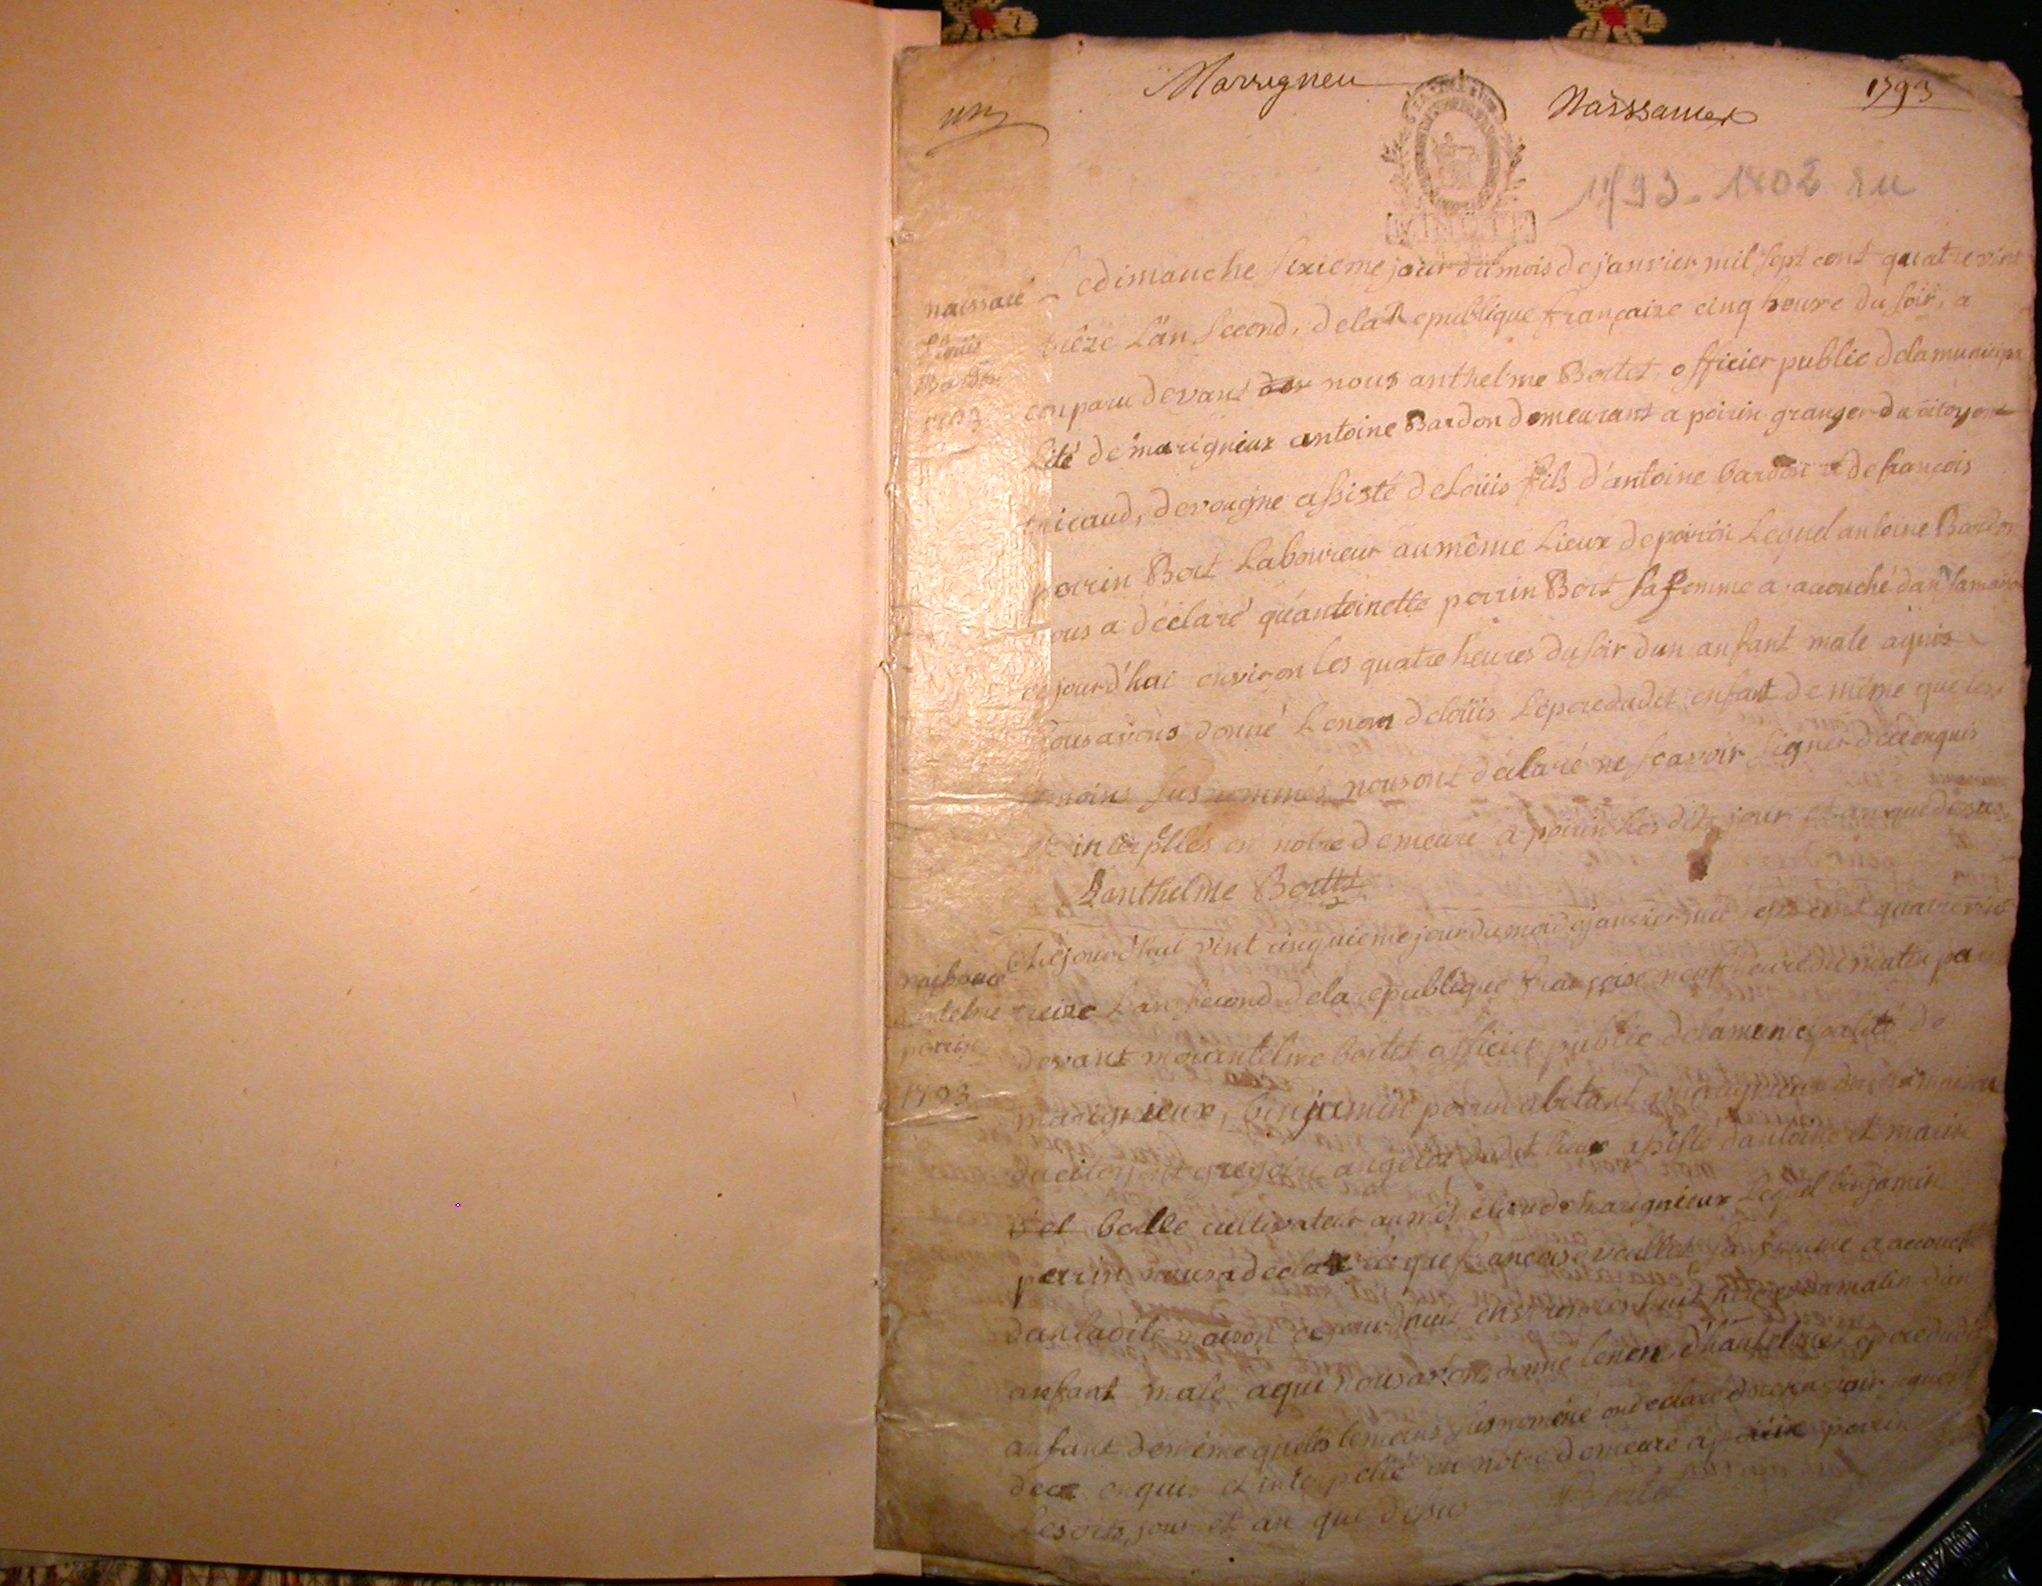 un
Marrigneu
Naissances
1793
1793-1802
naissace
Louis
Bardon
1793
Le dimanche sixieme jour du mois de janvier mil sept cent quatre vint
trêze l'an second, de la Republique française cinq heure du soir, a
conparu devant nous anthelme Bortet officier public de la municipa
lité de marignieux antoine Bardon demeurant a poirin granger du citoyent
nicaud, de vougne assisté de Loüis fils d'antoine bardon et de francois
perrin Bort Laboureur au même Lieux de poirin Lequel antoine Bardon
nous a déclaré qu'antoinette perrin Bort sa femme a accouché dans sa maison
cejourd'hui environ les quatre heures du soir d'un anfant male a qui
nous avons donné Le nom de Loüis Le pere du dit enfant de même que les
temoins sus nommés nous ont déclaré ne scavoir signer de ce enquis
et interpellés en notre demeure a poirin Les dits jour et an que dessus,
anthelme Bortet
naissace
antelme
perrin
1793
Cejourd'hui vint cinquieme jour du mois de janvier mil sept cent quatre vint
treize L'an second de la republique française neuf heure du matin par
devant moi antelme bortet officier public de la municipalité de
marignieux, binjamin perrin abitant a marignieux dans la maison
du citoyent gregoire du dit lieux assisté d'antoine et marin
bolle cultivateur au même lieu de marignieux Lequel binjamin
perrin nous a déclaré que françoise sa femme a accouché
dans la dite maison cejourd'hui environ les huit heures du matin d'un
anfant male a qui nous avons donné le nom d'hantelme Le pere du dit
anfant de même que les temoins sus nommé ont déclaré de ne scavoir signer
de ce enquis et interpellé en notre demeure a poirin
Les dits jour et an que desus Bortet